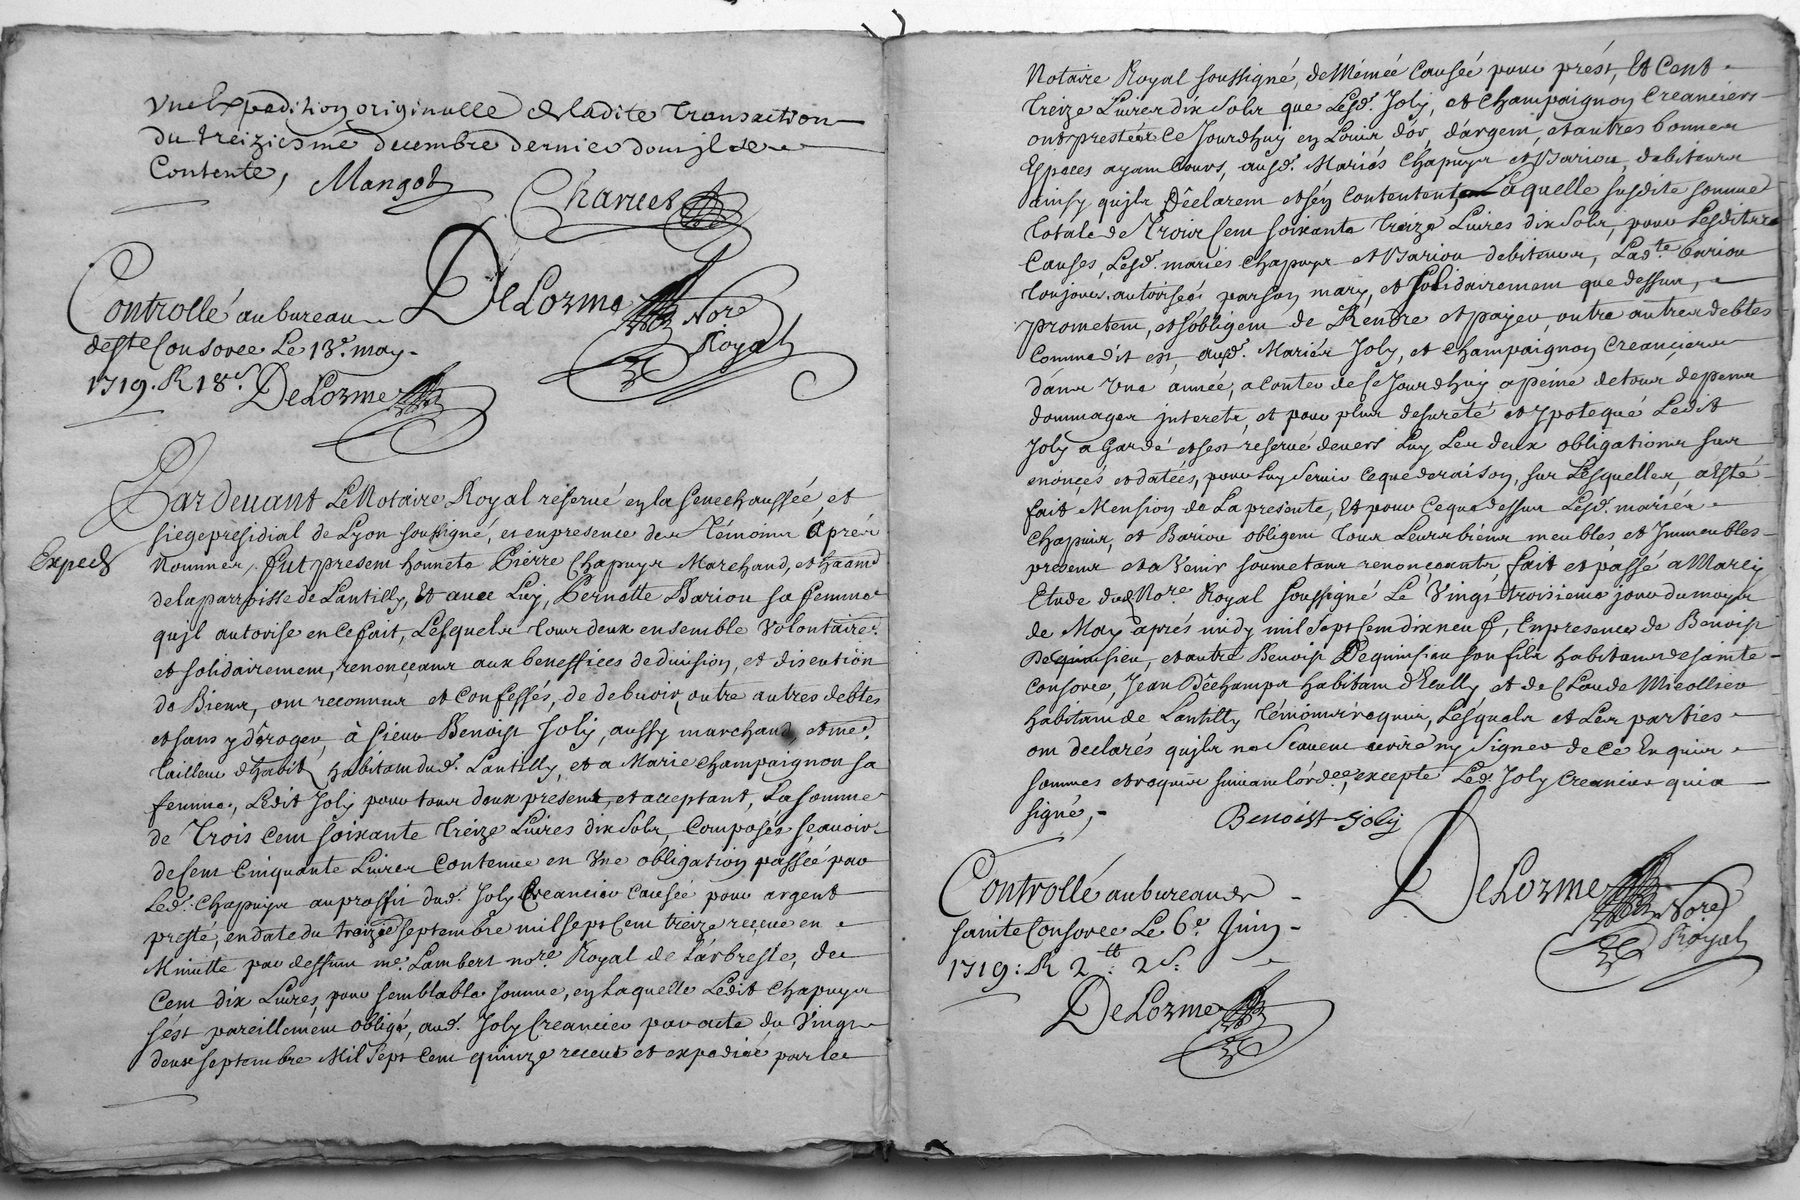 Vne Expedition originalle de ladite Transaction
du treiziesme decembre dernier dont jl se
Contente, Mangot Charuet
Controllé au bureau DeLorme Nore
de ste Consorce Le 13e. may Royal
1719. R 18s. DeLorme
Pardeuant Le Notaire Royal reserué en la seneschaussée, et
siege presidial de Lyon soussigné, et en presence des Témoins Aprés
Exped Nommés, fut present honneste Pierre Chapuys Marchand, et haänt
de la parroisse de Lantilly, Et auec Luy, Pernette Bariou sa femme
qujl autorise en ce fait, Lesquels tous deux ensemble Volontairet.
et solidairement, renonçeans aux beneffices de diuision, et disention
de Biens, ont reconnus et confessés, de debuoir, outre autres debtes
et sans y déroger, à sieur Benoist Joly, aussy marchand, et me.
Tailleur d'habit habitant dud. Lantilly, et a Marie Champaignon sa
femme, Ledit Joly pour tous deux present, et acceptant, La somme
de Trois cent soixante Treize Liures dix solz, Composés sçauoir
de cent Cinquante Liures Contenue en Vne obligation passée par
Led. Chapuys au proffit dud. Joly Creancier causée pour argent
presté, en datte du treize septembre mil sept cent treize receue en
Minutte par deffunt me. Lambert nore. Royal de L'arbresle, de
Cent dix Liures pour semblable somme, en laquelle Ledit Chapuys
s'est pareillement obligé, aud. Joly Creancier par acte du Vingt
deux septembre Mil Sept cent quinze receut et expedié par le
Notaire Royal soussigné, de Mémeé Causée pour prést, Et Cent
Treize Liures dix Solz que Lesd. Joly, et Champaignon Creanciers
ont prestées ce Jourdhuy en Louis d'or, d'argent, et autres bonnes
Especes ayant Cours, ausd. Mariés Chapuys et Bariou, debiteurs
ainsy qujls Déclarent et s'en contentent Laquelle susdite somme
Totale de Trois Cent soixante Treize Liures dix Solz, pour Lesdites
Causes, Lesd. mariés Chapuys et Bariou debiteurs, Lad.te bariou
toujours autorisée par son mary, et solidairement que dessus,
promettent, et s'obligent de Rendre et payer, outre autres debtes
Comme dit est, ausd. Mariés Joly, et Champaignon Creançiers
dans Vne année, a conter de ce Jourdhuy a peine de tous depens
dommages interets, et pour plus de sureté et ypotequé Ledit
Joly a Gardé et s'est reserué deuers Luy Les deux obligations sus
enonçés et datées, pour Luy Seruir ce que de raison, sur Lesquelles, a Esté
fait Mension de La presente, Et pour ce que dessus Lesd. mariés
Chapuis, et Bariou obligent tous Leurs biens meubles et Immeubles
presens et a Venir soumetans renonceants, fait et passé a Marcy
Etude dud Nore. Royal soussigné Le Vingt troisieme jour du moys
de May aprés midy mil sept Cent dix neuf, En presences de Benoist
Dequinsieu, et autre Benoist Dequinsieu son fils habitans de sainte
Consorce, Jean Déchamps habitant d'Ecully et de Claude Micollier
habitant de Lantilly témoins requis, Lesquels et Les parties
ont declarés qujls ne Scauent écrire ny Signer de ce Enquis
sommés et requis suiuant L'ordce, excepté Led. Joly Creancier qui a
signé, Benoist Joly
Controllé au bureau de DeLorme
sainte Consorce Le 6e. Juin Nore
1719: R 2tt: 2s. Royal
DeLorme